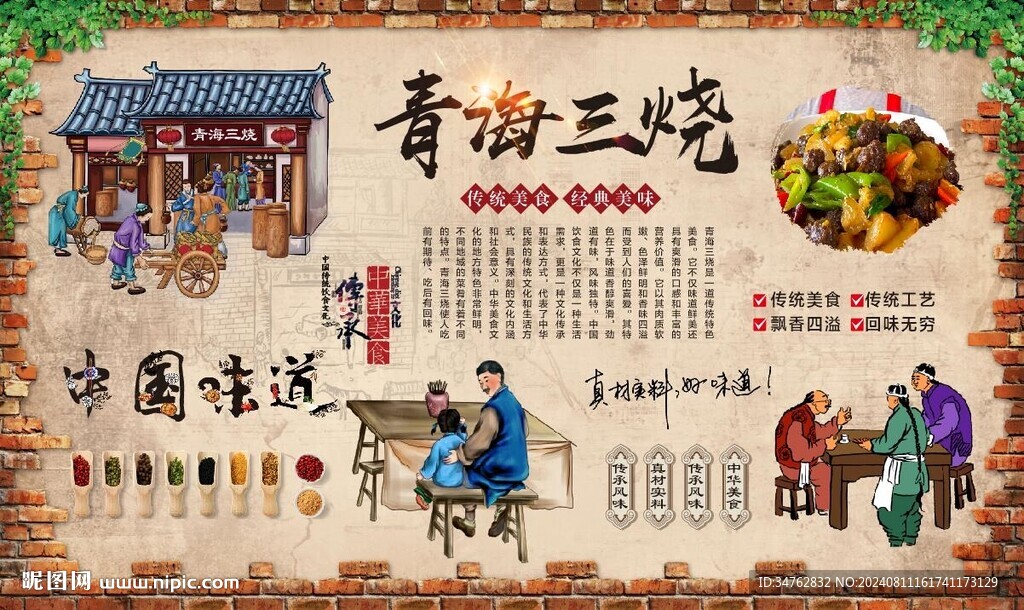 青海三烧
青海三烧
传统美食 经典美味
青海三烧是一道传统特色
美食。它不仅味道鲜美还
具有爽滑的口感和丰富的
营养价值。它以其肉质软
嫩、色泽鲜明和香味四溢
而受到人们的喜爱。其特
色在于味道香醇爽滑，劲
道有味，风味独特。中国
饮食文化不仅是一种生活
需求，更是一种文化传承
和表达方式，代表了中华
民族的传统文化和生活方
式，具有深刻的文化内涵
和社会意义。中华美食文
化的地方特色非常鲜明，
不同地域的菜肴有着不同
的特点。青海三烧使人吃
前有期待、吃后有回味。
中国传统饮食文化
传承
中華美食
文化
传统美食 传统工艺
飘香四溢 回味无穷
中国味道
真材实料,好味道!
传承风味
真材实料
传承风味
中华美食
昵图网 www.nipic.com
ID:34762832 NO:20240811161741173129